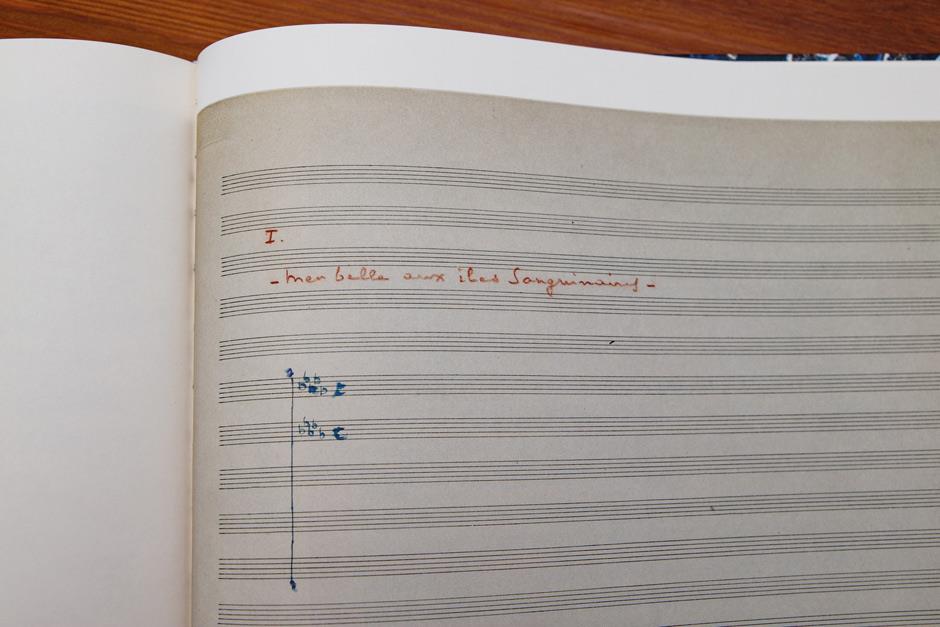 I.
- Mer belle aux îles Sanguinaires -